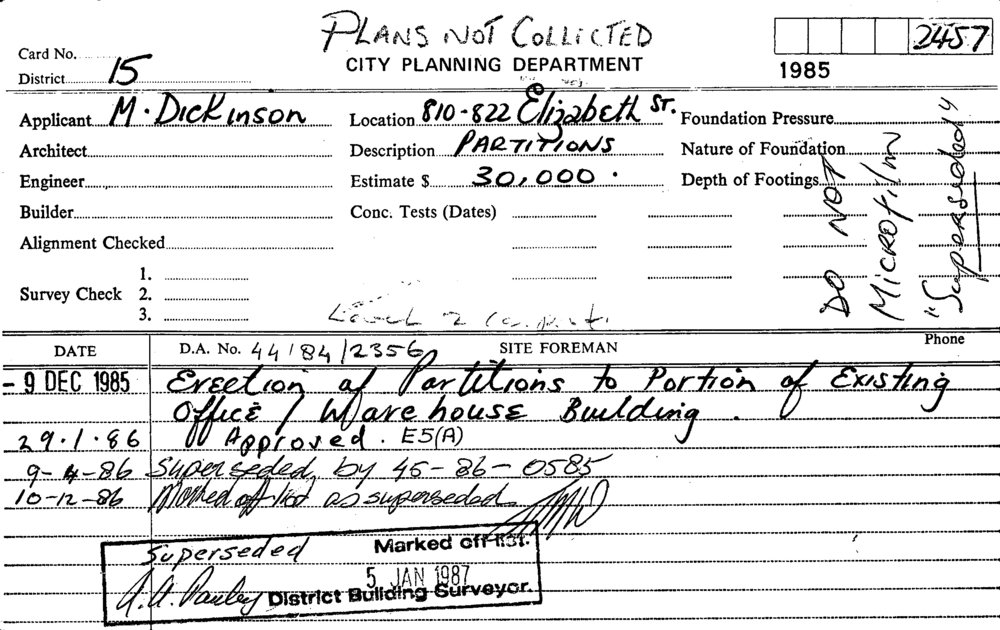 PLANS NOT COLLICTED
CITY PLANNING DEPARTMENT
2457
1985
Card No.
District 15
Applicant M. Dickinson
Location 810-822 Elizabeth St.
Foundation Pressure
Architect
Description PARTITIONS
Nature of Foundation
Engineer
Estimate $ 30,000.
Depth of Footings
Builder
Conc. Tests (Dates)
Alignment Checked
Survey Check 1.
2.
3.
DO NOT
MICROFILM
"Superseded"
Level 2
DATE D.A. No. 44/84/2356 SITE FOREMAN Phone
- 9 DEC 1985 Erection of Partitions to Portion of Existing
Office / Warehouse Building.
29.1.86 Approved. E5(A)
9-4-86 Superseded, by 45-86-0585
10-12-86 Marked off list as superseded
Superseded Marked off list.
5 JAN 1987
District Building Surveyor.